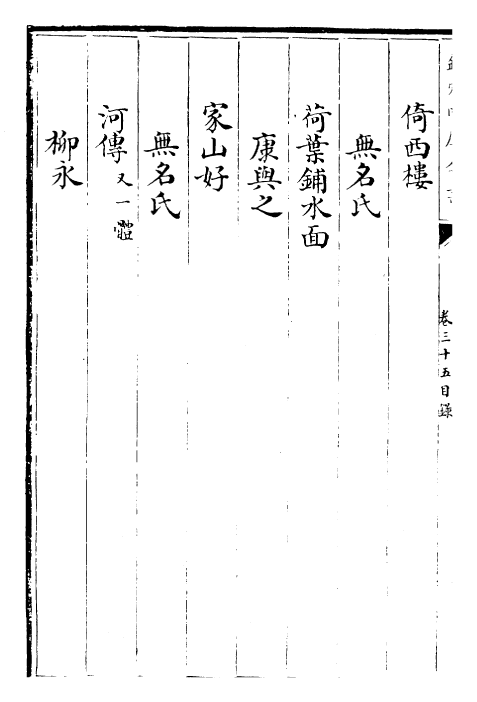 卷三十五目錄
倚西樓
無名氏
荷葉鋪水面
康與之
家山好
無名氏
河傳又一體
柳永